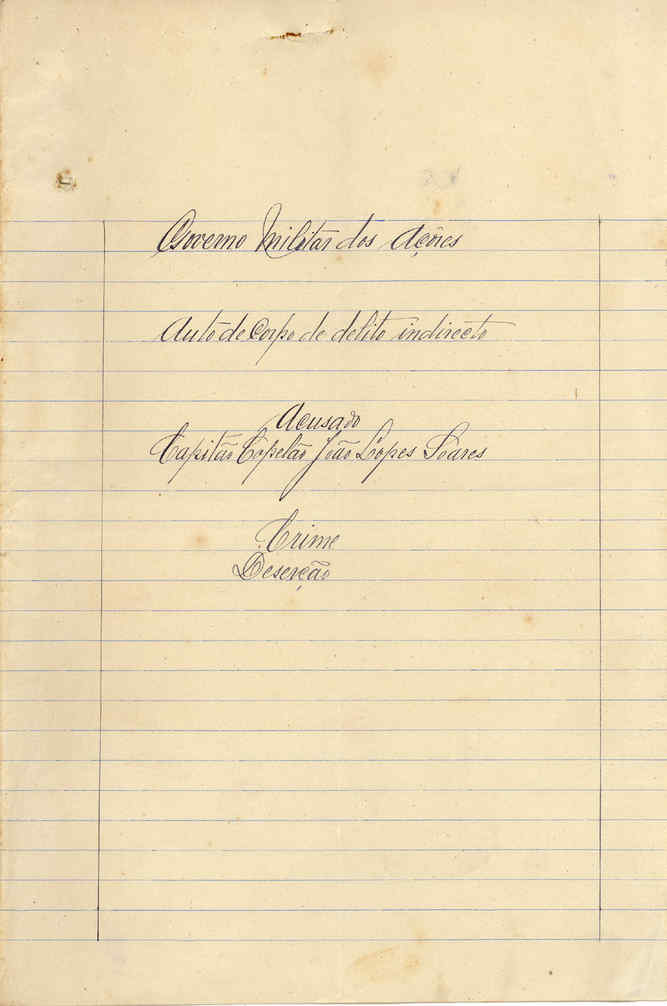 Governo Militar dos Açôres
Auto de Corpo de delito indirecto
Acusado
Capitão Capelão João Lopes Soares
Crime
Deserção